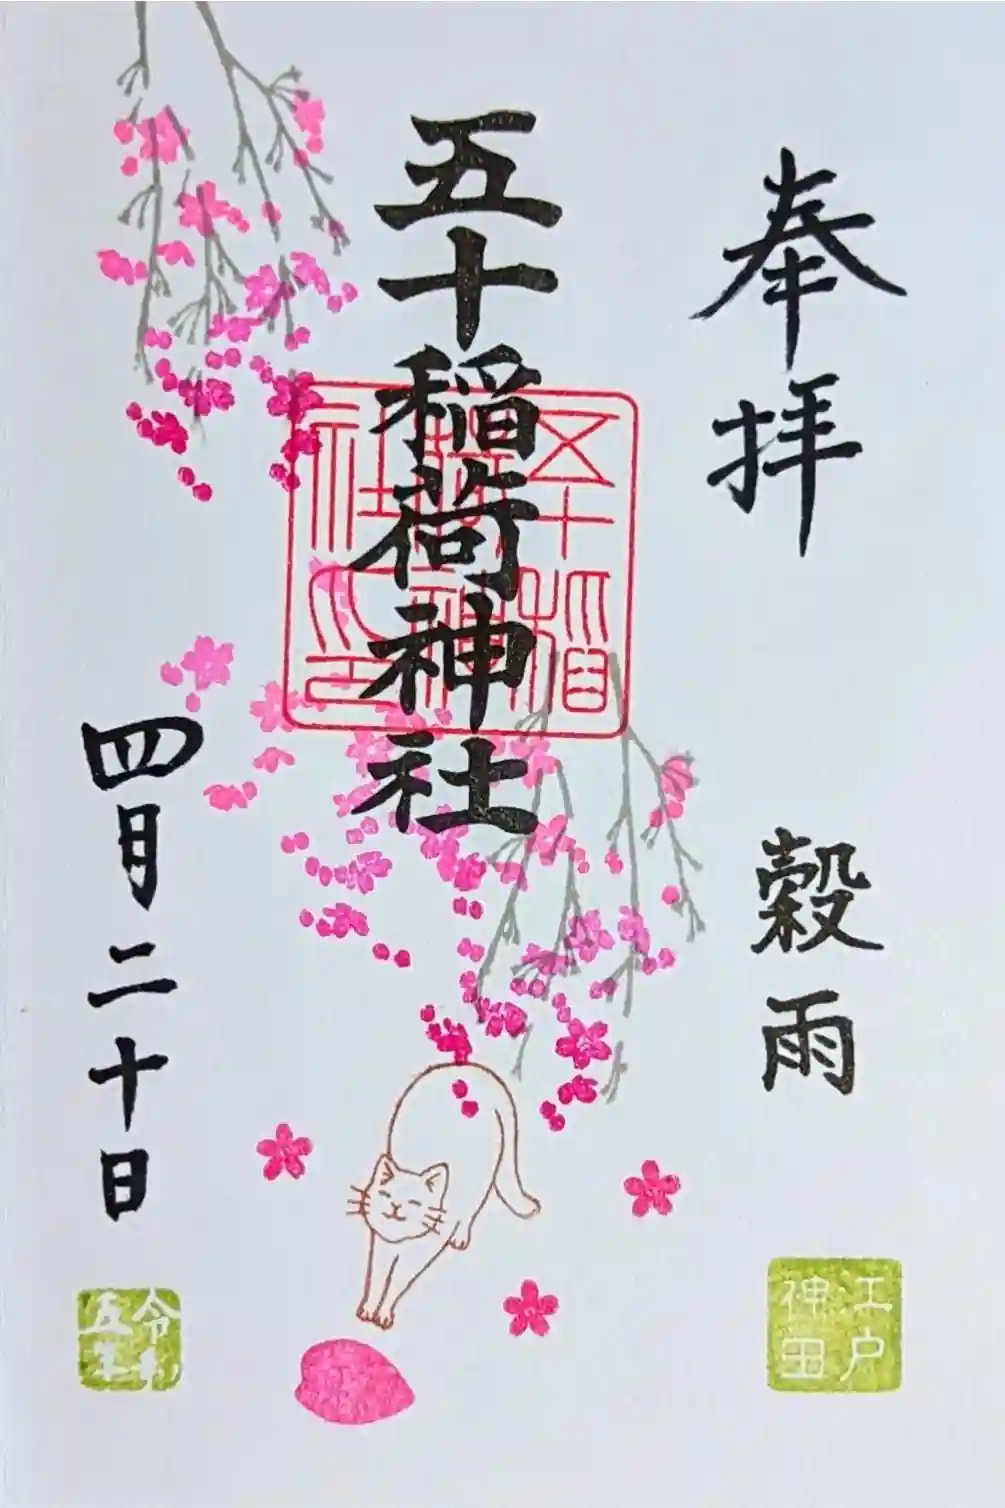 奉拝
穀雨
江戸
神田
五十稲荷神社
五十稲
荷神
社印
四月二十日
令和
五年